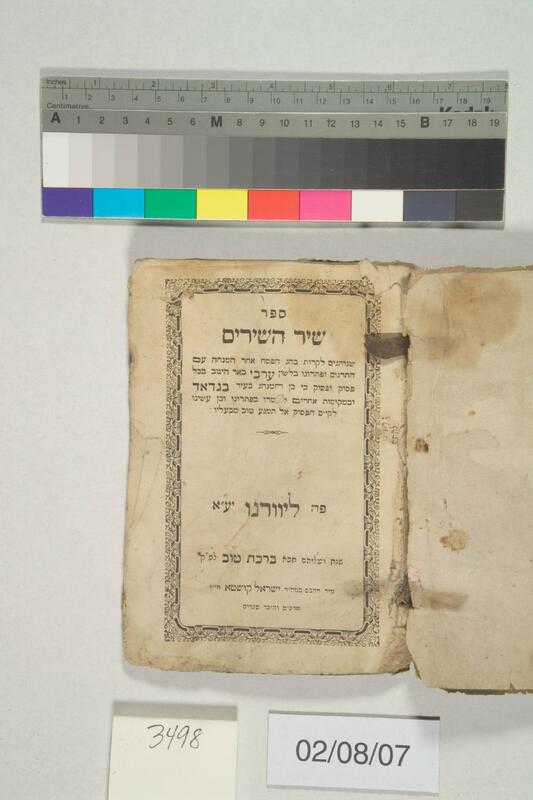 inches 1 2 3 4 5 6 7 8
Centimetres 1 2 3 4 5 6 7 8 9 10 11 12 13 14 15 16 17 18 19
A 1 2 3 4 5 6 M 8 9 10 11 12 13 14 15 B 17 18 19
ספר
שיר השירים
שנוהגים לקרות בחג הפסח אחר המנחה עם
התרגום ופתרונו בלשון ערבי באר היטב בכל
פסוק ופסוק כי כן המנהג בעיר בגדאד
ובמקומות אחרים בפתרונו וכן עשינו
לקיים הפסוק אל תמנע טוב מבעליו :
פה ליוורנו יע״א
שנת ועליהם תבא ברכת טוב לפ״ק
ישראל קושטא
מדפיס ומוכר ספרים
3498
02/08/07